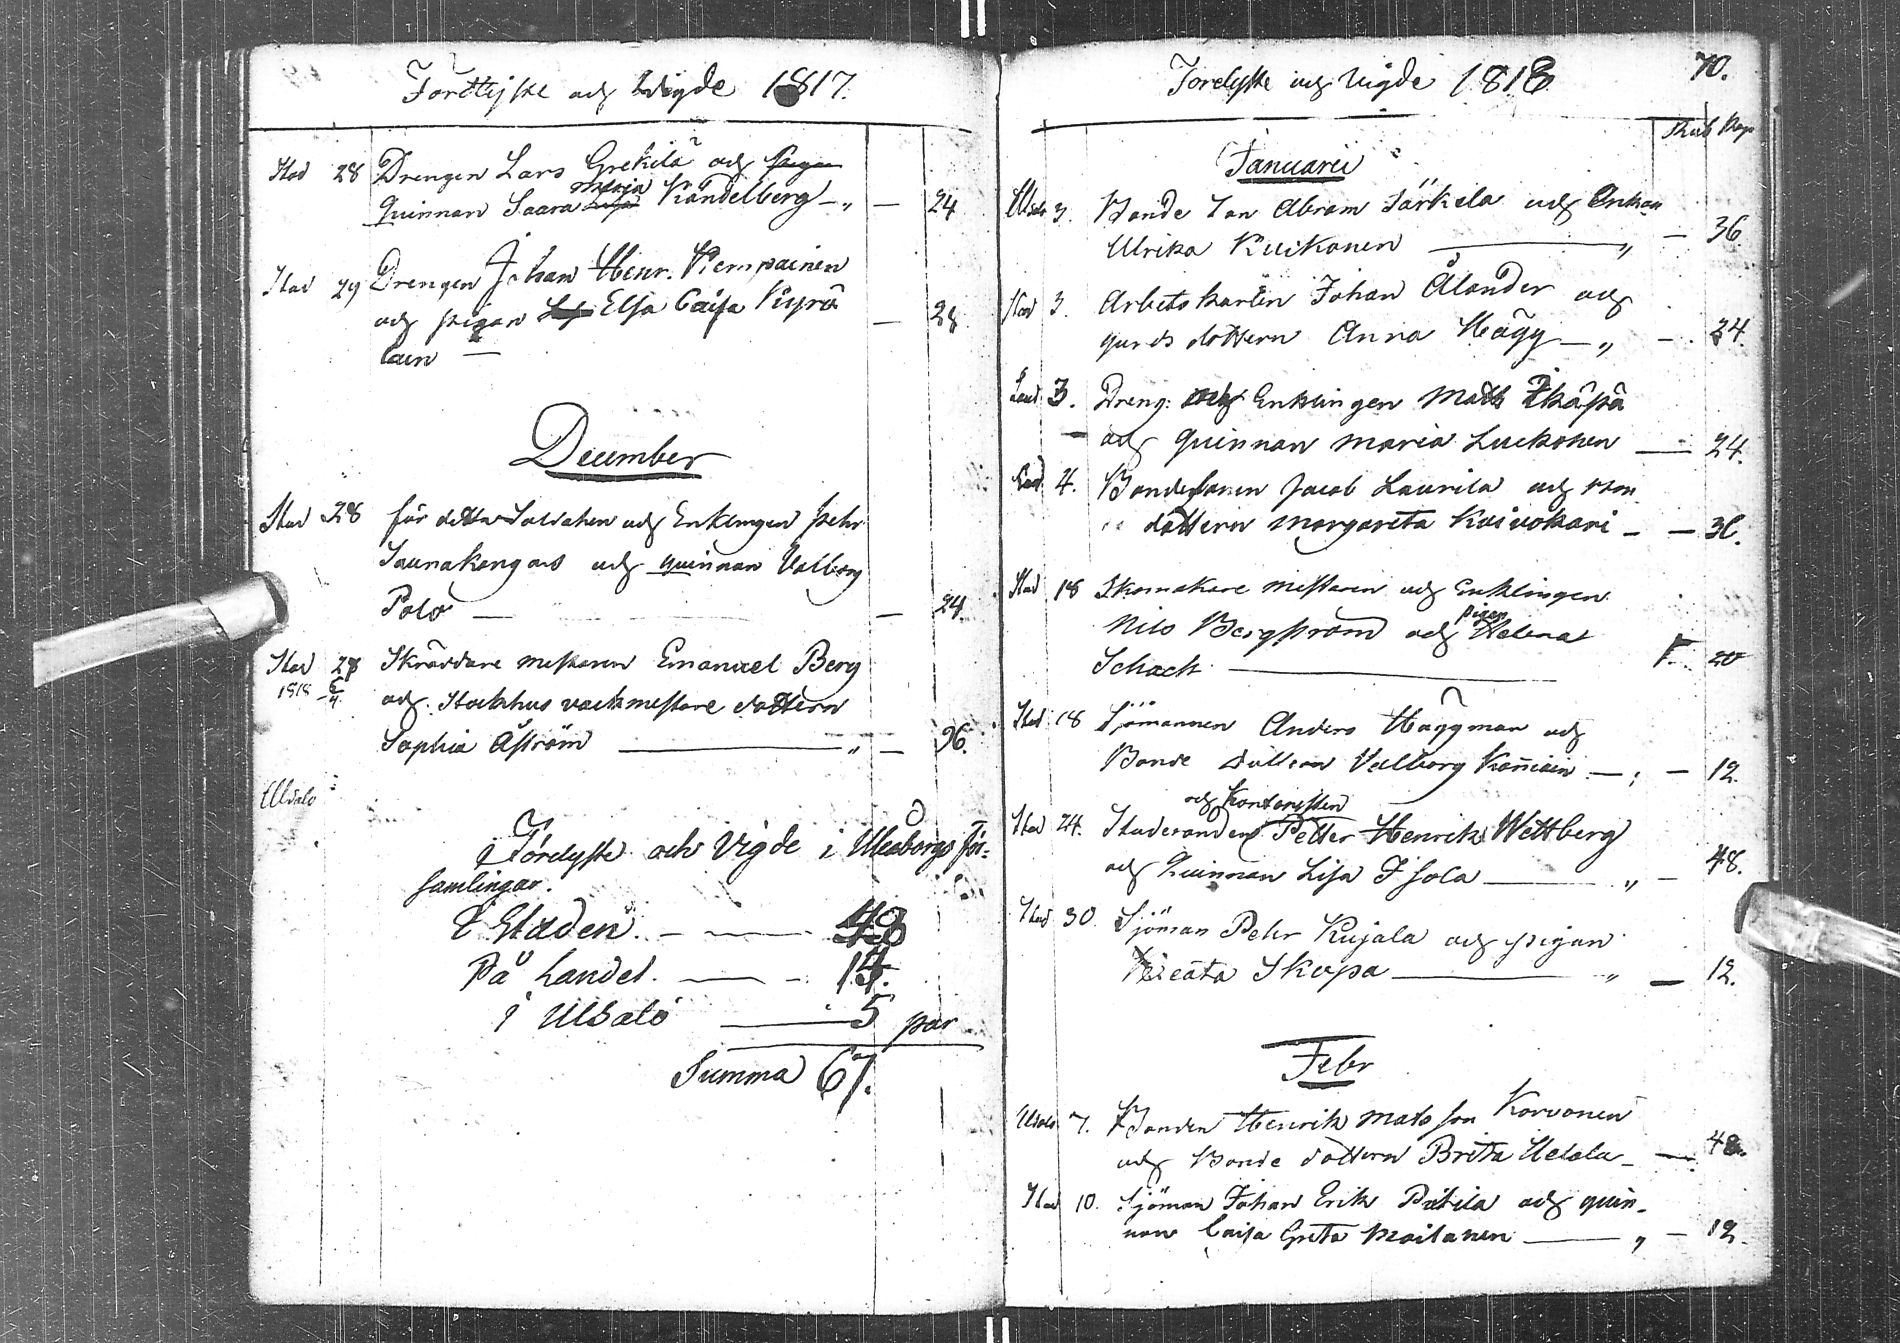 Förelyste och Wigde 1817.
Stad 28 Drengen Lars Grekilä och pigan
quinnan Saara Maja Kändelberg — " — 24
Stad 29 Drengen Johan Henr. Kempainen
och pigan Elsa Caisa Kyrö — 28
lain —
December
Stad 28 för detta Soldaten och Enklingen Pehr
Saunakangas och quinnan Valborg
Polo — — 24
Stad 28 Skräddare mestaren Emanuel Berg
1818 6/4 och Stockhus vackmestare dottern
Sophia Åström — " — 96.
Ulealo
Förelyste och Vigde i Uleåborgs för-
samlingar.
i Staden — 48
På Landet — 14.
i Ulsalo — 5 par
Summa 67.
Förelyste och Vigde 1818 70.
Rub Kop
Januarii
Ulsalo 3. Bonde Son Abram Järkela och Enkan
Ulrika Kuikonen — " — 36
Stad 3. Arbetskarlen Johan Ålander och
gårdsdottern Anna Hägg — " — 24
Land 3. Dreng. och Enklingen Matts
och quinnan Maria Luckonen — 24.
Land 4. Bondesonen Jacob Laurila och Bon
dottern Margareta Kuivokari — — 36.
Stad 18 Skomakare mestaren och Enklingen
Nils Bergström och pigan Helena
Schack — 1. 20
Stad 18 Sjömannen Anders Häggman och
Bonde dottern Valborg — " — 12.
och Kontoristen
Stad 24. Studeranden Petter Henrik Wettberg
och Kuinnan Lisa Isola — " — 48.
Stad 30 Sjöman Pehr Kujala och pigan
Beata Skapa — " — 12.
Febr
Ulsalo 7. Bonden Henrik Mats son Korvonen
och Bonde dottern Brita Uelola — — 48.
Stad 10. Sjöman Johan Erik Pätila och quin-
nan Caisa Greta Moilanen — " — 12.